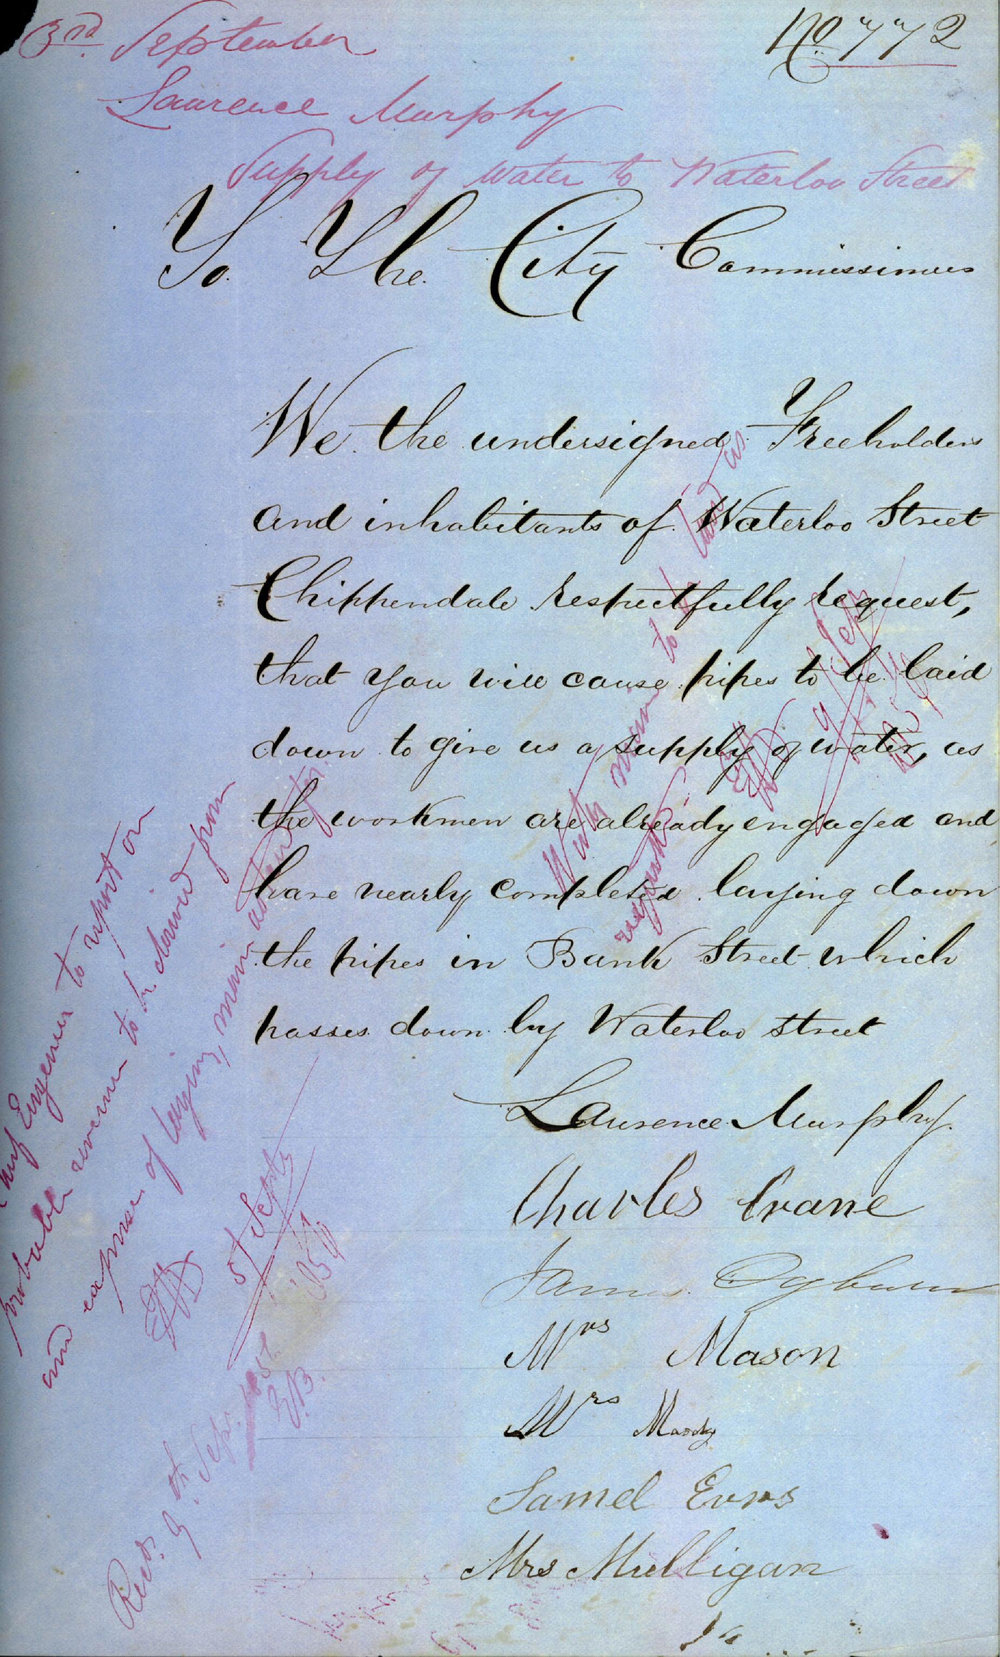 3rd September
No 772
Laurence Murphy
Supply of water to Waterloo Street
To The City Commissioners
We the undersigned Freeholders
and inhabitants of Waterloo Street
Chippendale respectfully request,
that you will cause pipes to be laid
down to give us a supply of water, as
the workmen are already engaged and
have nearly completed laying down
the pipes in Bank Street which
passes down by Waterloo street
Laurence Murphy.
Charles Crane
James Ogburn
Mrs Mason
Mrs Moody
Samel Evns
Mrs Mulligan
City Engineer to report on
probable revenue to be derived from
and expense of laying, main
5 / Septr
1854
Recd. 9th Sepr. 185
E.B.
Water main to be laid as
requested
9 / Sep